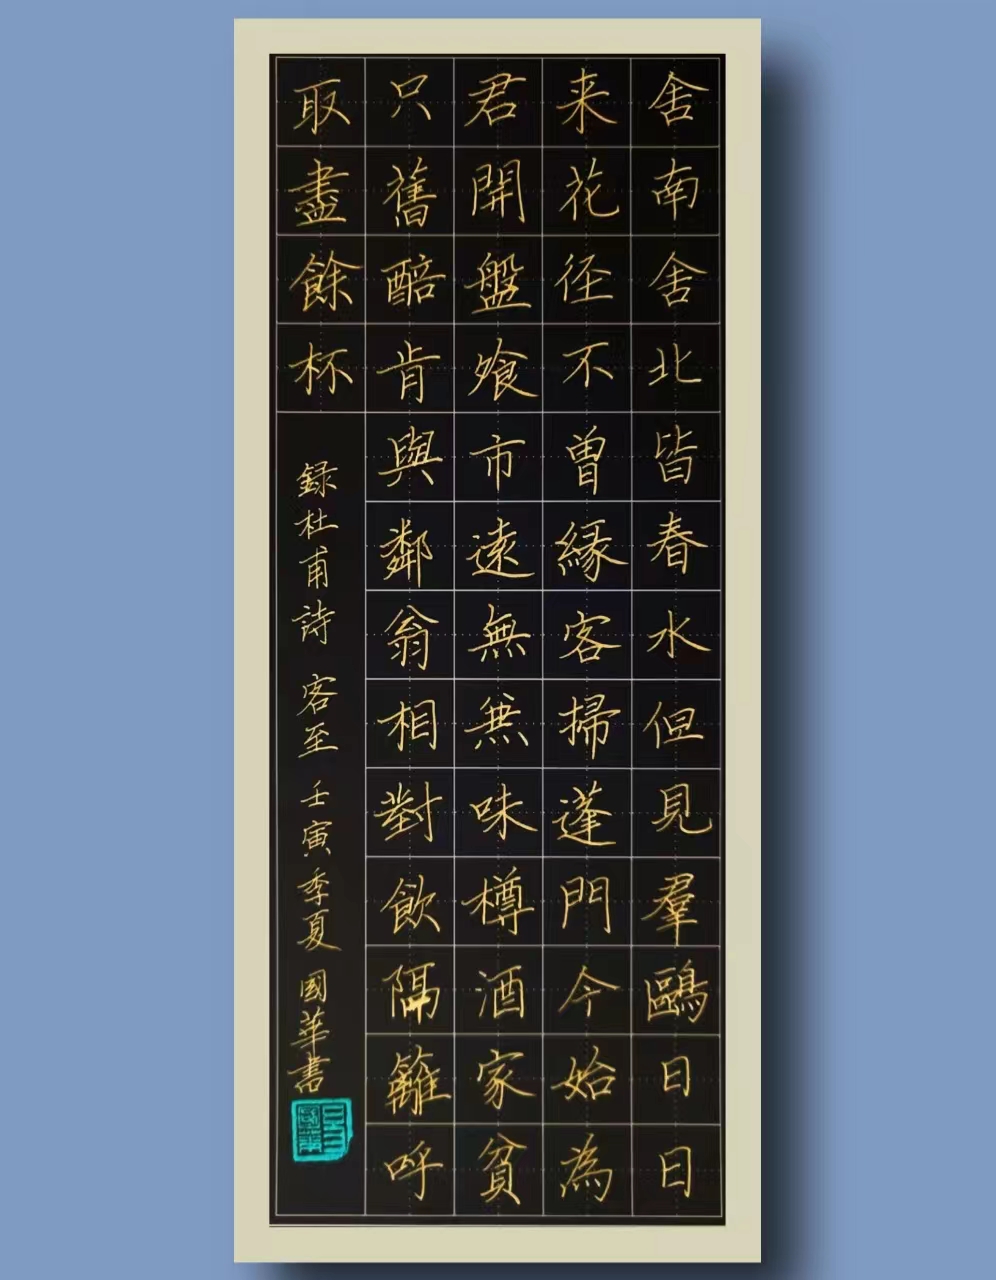 舍南舍北皆春水但見羣鷗日日
来花径不曾緣客掃蓬門今始為
君開盤飱市遠無兼味樽酒家貧
只舊醅肯與鄰翁相對飲隔籬呼
取盡餘杯
録杜甫詩 客至 壬寅季夏 國華書